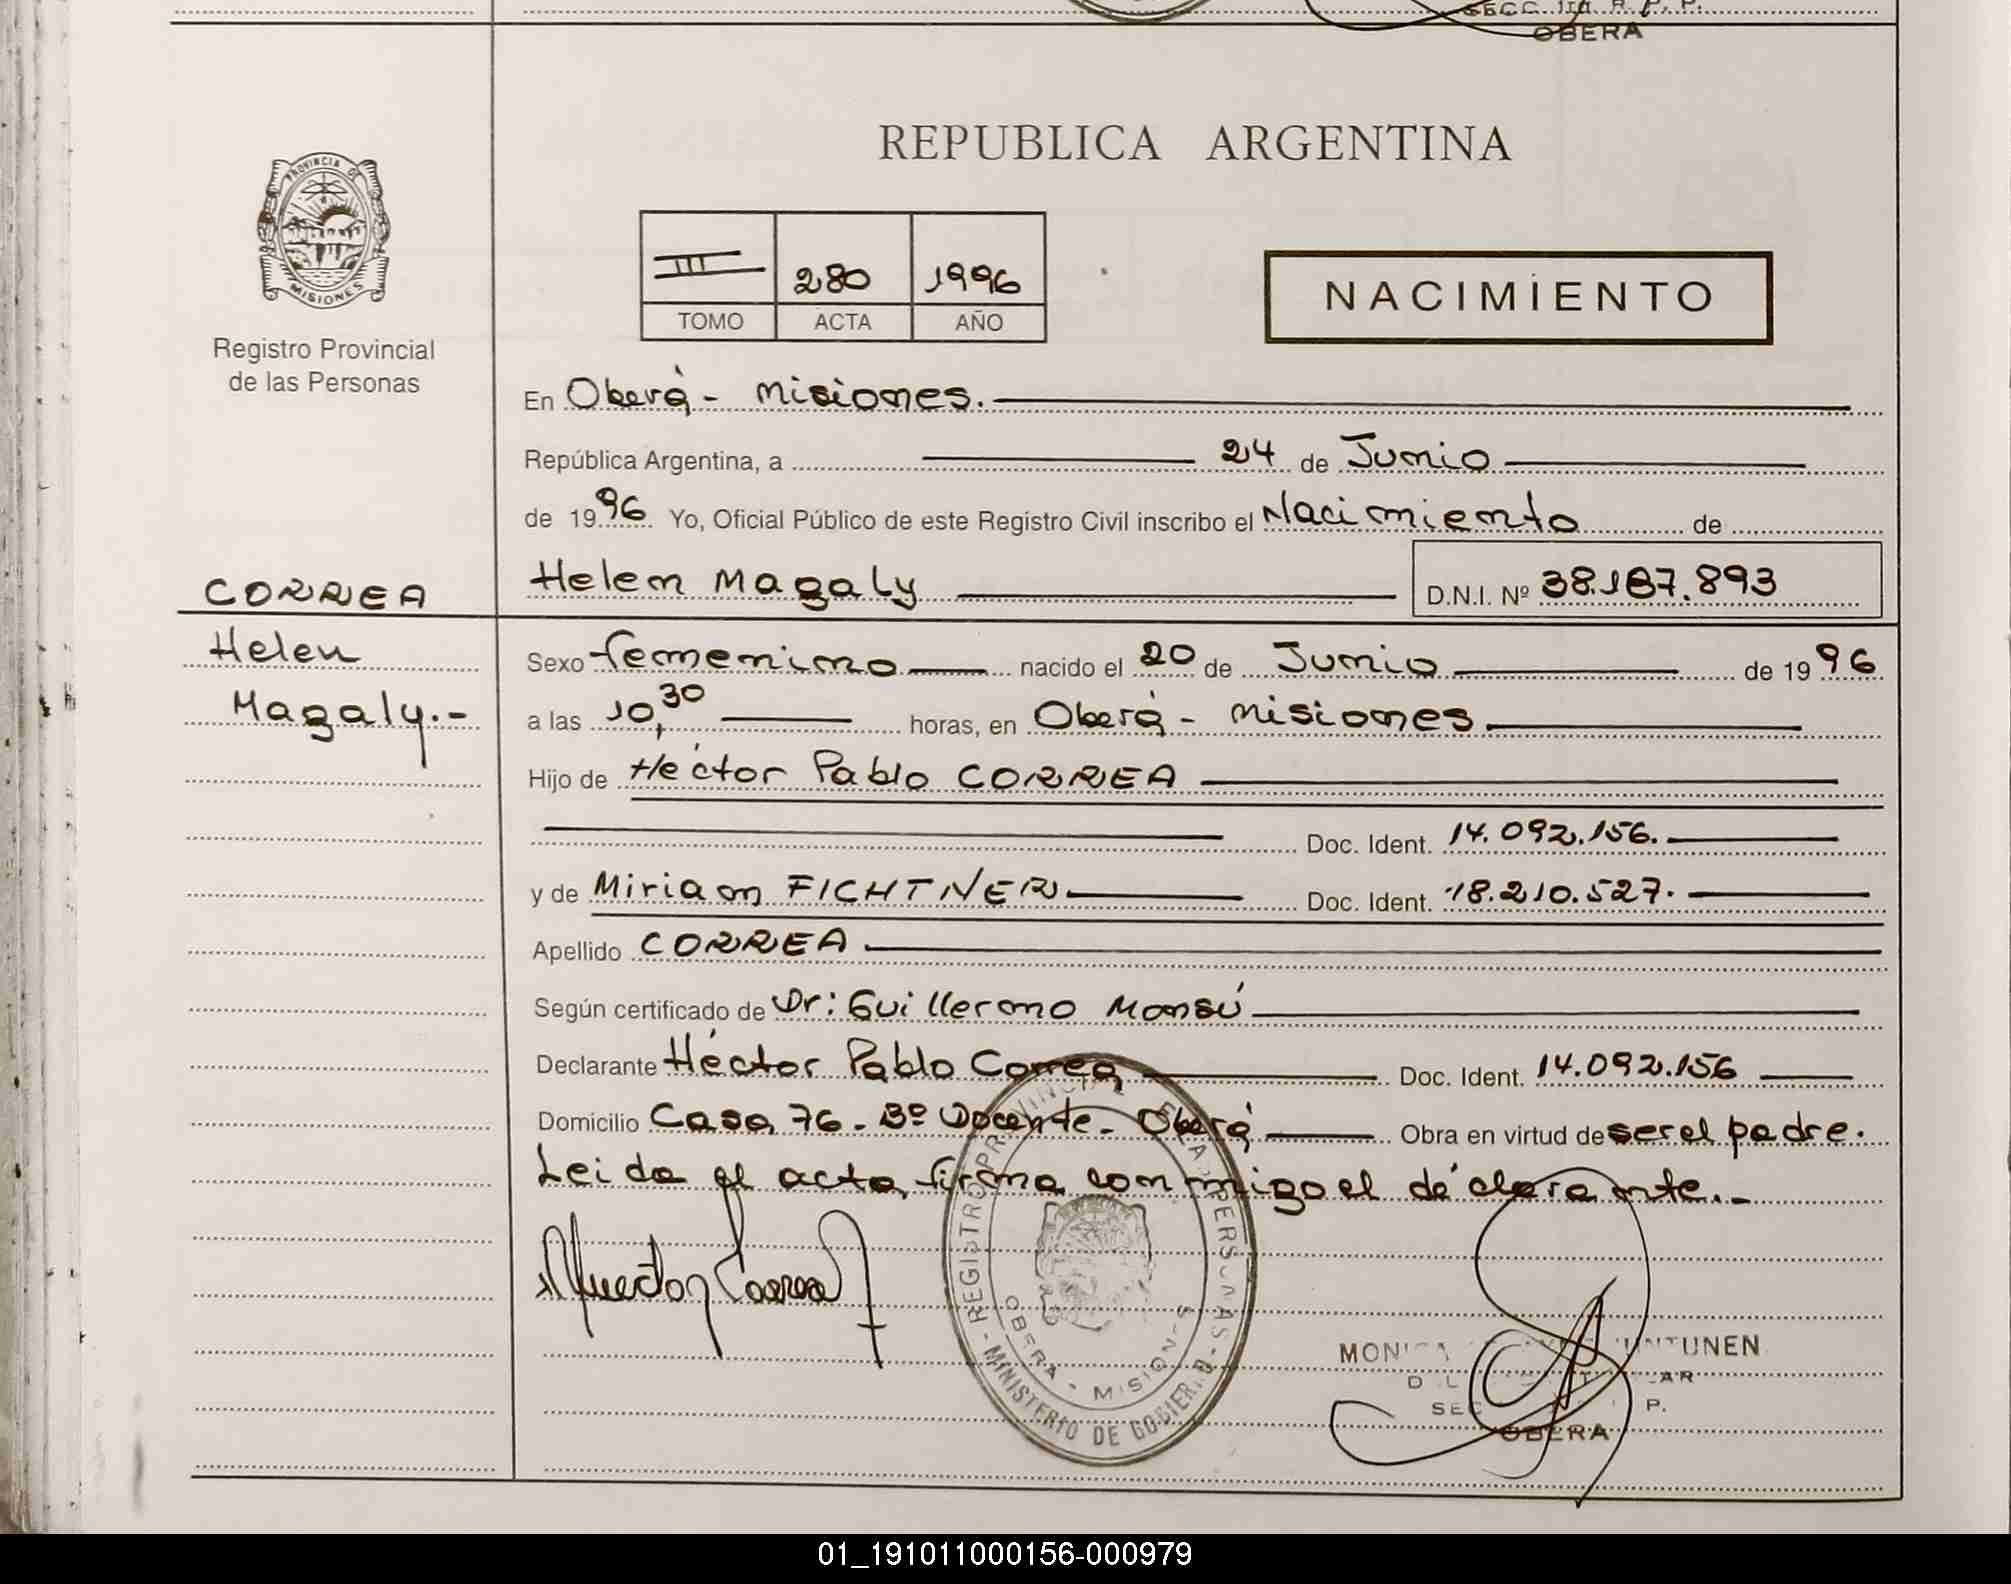 SECC. 1ra R. P. P.
OBERA
REPUBLICA ARGENTINA
PROVINCIA DE
MISIONES
Registro Provincial
de las Personas
III 280 1996
TOMO ACTA AÑO
NACIMIENTO
En Oberá - Misiones.
República Argentina, a 24 de Junio
de 1996 Yo, Oficial Público de este Registro Civil inscribo el Nacimiento de
CORREA
Helen Magaly D.N.I. Nº 38.187.893
Helen
Magaly.-
Sexo femenino nacido el 20 de Junio de 1996
a las 10,30 horas, en Oberá - Misiones
Hijo de Héctor Pablo CORREA
Doc. Ident. 14.092.156.
y de Miriam FICHTNER Doc. Ident. 18.210.527.
Apellido CORREA
Según certificado de Dr: Guillermo Monsú
Declarante Héctor Pablo Correa Doc. Ident. 14.092.156
Domicilio Casa 76 - Bº Docente - Oberá Obra en virtud de ser el padre.
Leida el acta, firma conmigo el declarante.-
REGISTRO PROVINCIAL DE LAS PERSONAS - MINISTERIO DE GOBIERNO -
OBERA - MISIONES
MONICA UNTUNEN
SEC P.
OBERA
01_191011000156-000979